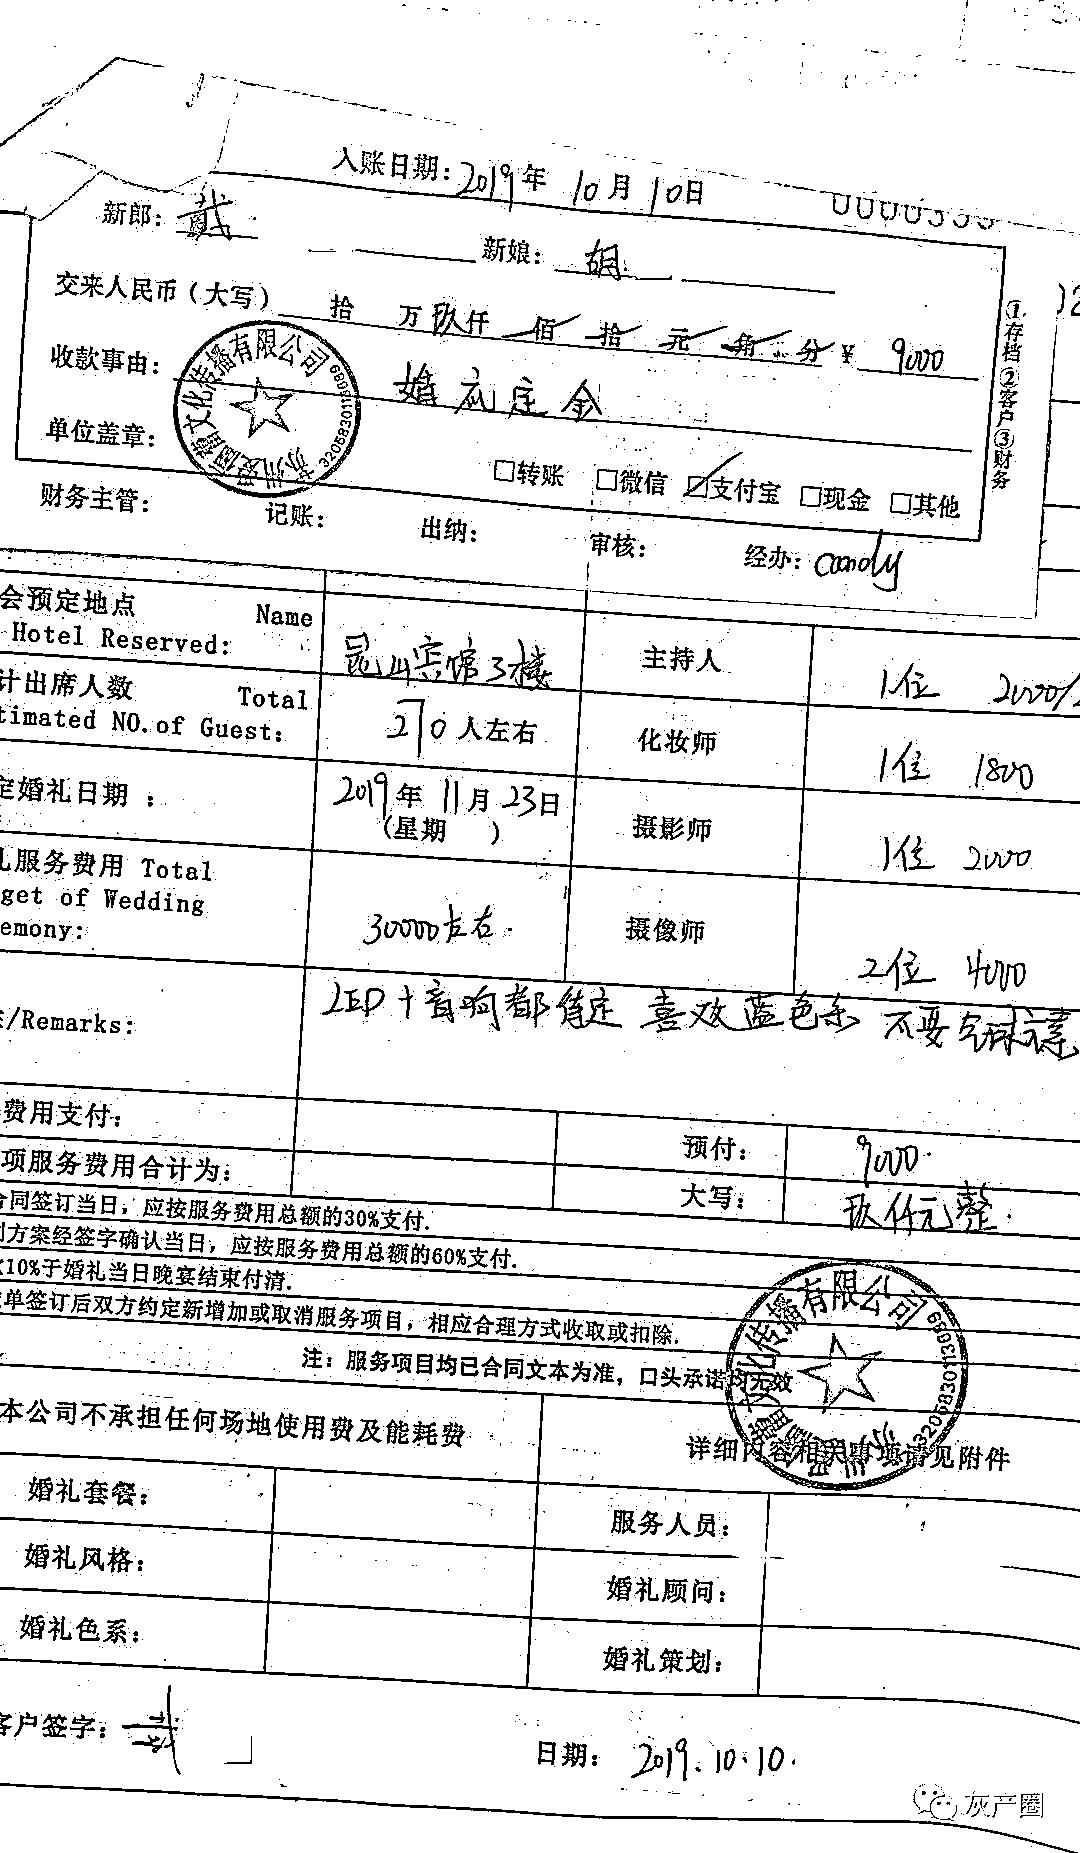 入账日期: 2019年 10月 10日
新郎: 戴 新娘: 胡
交来人民币（大写） 拾 万 玖仟 佰 拾 元 角 分 ¥ 9000
收款事由: 婚礼定金
单位盖章:
文化传播有限公司
3205830113089
□转账 □微信 ☑支付宝 □现金 □其他
①存档②客户③财务
财务主管: 记账: 出纳: 审核: 经办: candy
会预定地点 Name
Hotel Reserved: 昆山宾馆3楼 主持人 1位 2000/
计出席人数 Total
timated NO.of Guest: 270人左右 化妆师 1位 1800
定婚礼日期 : 2019年 11月 23日
(星期 ) 摄影师 1位 2000
礼服务费用 Total
get of Wedding
emony: 30000左右. 摄像师 2位 4000
/Remarks: LED+音响都待定 喜欢蓝色系 不要气球元素
费用支付: 预付: 9000.
项服务费用合计为: 大写: 玖仟元整.
合同签订当日, 应按服务费用总额的30%支付.
划方案经签字确认当日, 应按服务费用总额的60%支付.
10%于婚礼当日晚宴结束付清.
单签订后双方约定新增加或取消服务项目, 相应合理方式收取或扣除.
注: 服务项目均已合同文本为准, 口头承诺均无效
文化传播有限公司
3205830113089
本公司不承担任何场地使用费及能耗费 详细内容相关事项请见附件
婚礼套餐: 服务人员:
婚礼风格: 婚礼顾问:
婚礼色系: 婚礼策划:
客户签字: 戴 日期: 2019.10.10.
灰产圈